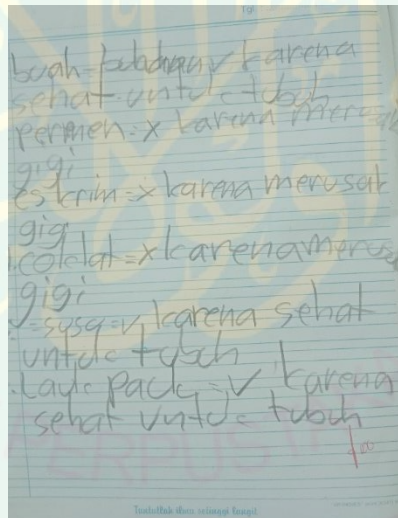 buah = v karena
sehat untuk tubuh
permen = x karena merusak
gigi
eskrim = x karena merusak
gigi
coklat = x karena merusak
gigi
= susu = v karena sehat
untuk tubuh
Lauk pauk = v karena
sehat untuk tubuh
100
Tuntutlah ilmu setinggi langit